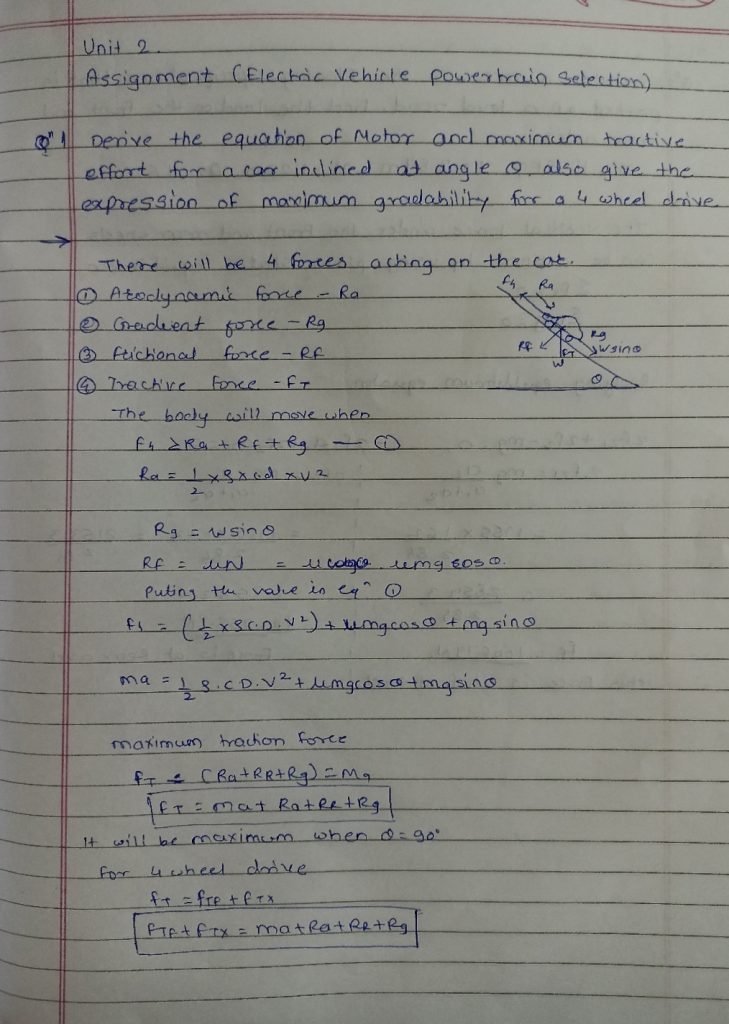 Unit 2.
Assignment (Electric Vehicle powertrain Selection)
Qⁿ 1 Derive the equation of Motor and maximum tractive
effort for a car inclined at angle θ, also give the
expression of maximum gradability for a 4 wheel drive
→
There will be 4 forces acting on the car.
① Arodynamic force - Ra
② Gradient force - Rg
③ frictional force - Rf
④ Tractive force - FT
Ra
Rg
Rf
wsinθ
W
θ
The body will move when
≥ Ra + Rf + Rg — ①
Ra = 1/2 × ρ × cd × v2
Rg = wsinθ
Rf = μN = μmg cosθ.
Puting the value in eqⁿ ①
= (1/2 × ρ C.D. V²) + μmgcosθ + mg sinθ
ma = 1/2 ρ. C D. V² + μmgcosθ + mgsinθ
maximum traction force
FT = (Ra+RR+Rg) = Ma
FT = ma + Ra + RR + Rg
It will be maximum when θ = 90°
for 4 wheel drive
fT = fTF + fTX
FTF + FTX = ma + Ra + RR + Rg